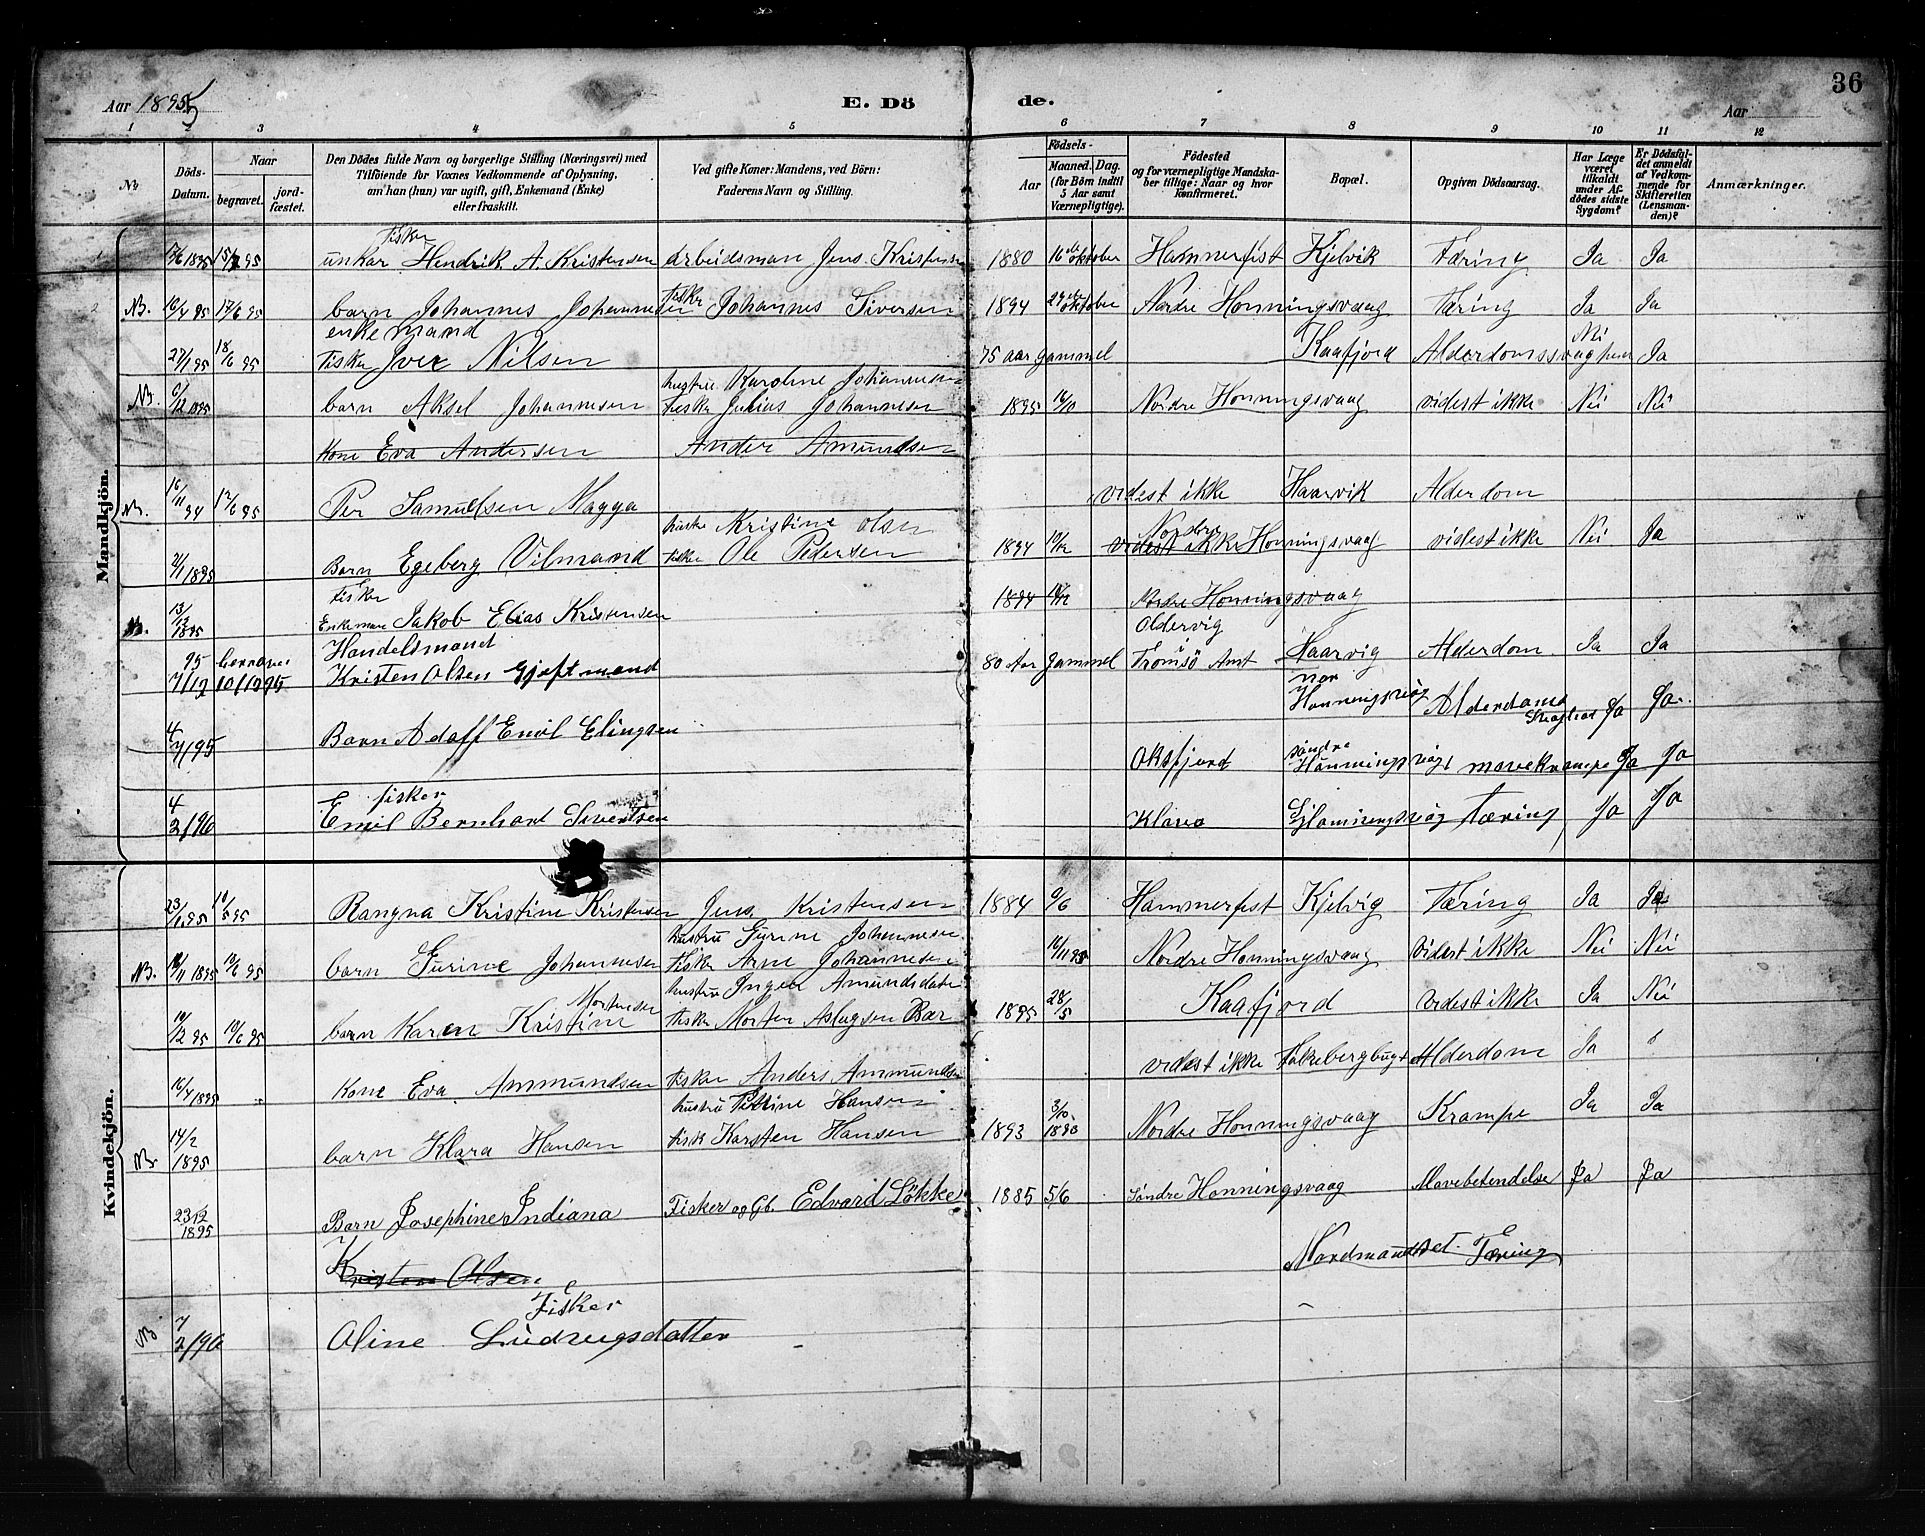 36
Aar 1895
E. Dö de.
Aar
1 2 3 4 5 6 7 8 9 10 11 12
No
Döds-Datum.
Naar
begravet.
jord-fæstet.
Den Dödes fulde Navn og borgerlige Stilling (Næringsvei) med
Tilföiende for Voxnes Vedkommende af Oplysning,
om han (hun) var ugift, gift, Enkemand (Enke)
eller fraskilt.
Ved gifte Koner: Mandens, ved Börn:
Faderens Navn og Stilling.
Födsels-
Aar
Maaned. Dag.
(for Börn indtil
5 Aar samt
Værnepligtige).
Födested
og for værnepligtige Mandska-
ber tillige: Naar og hvor
konfirmeret.
Bopæl.
Opgiven Dödsaarsag.
Har Læge
været
tilkaldt
under Af-
dödes sidste
Sygdom?
Er Dödsfal-
det anmeldt
af Vedkom-
mende for
Skifteretten
(Lensman-
den)?
Anmærkninger.
Mandkjön.
Fisker
unkar Hendrik A. Kristensen arbeidsman Jens Kristensen 1880 16 oktober Hammerfest Kjelvik Tæring Ja Ja
NB. 17/6 95 barn Johannes Johannesen Fisker Johannes Siversen 1894 29 oktober Nordre Honningsvaag Tæring Ja Ja
enkemand
18/6 95 Fisker Iver Nilsen 75 aar gammel Kaafjord Alderdomssvaghed Nei Ja
hustru Karoline Johannesen
NB. 6/12 1895 barn Aksel Johannesen Fisker Julius Johannesen 1895 16/10 Nordre Honningsvaag videst ikke Nei Nei
Kone Eva Andersen Ander Amundsen
NB. 16/11 94 12/6 95 Per Samuelsen Magga videst ikke Haarvik Alderdom
hustru Kristine Olsen
2/1 1895 Barn Egeberg Vilmand Fisker Ole Pedersen 1894 19/12 videst ikke Nordre Honningsvaag videst ikke Nei Ja
Fisker
13/12 1895 Enkeman Jakob Elias Kristensen 1894 19/12 Nordre Honningsvaag
Handelsmand Oldervig i
95 7/12 10/12 95 Kristen Olsen Gjeft mand 80 Aar gammel Tromsö Amt Haarvig Alderdom Ja Ja
nor Honningsvåg Alderdoms Ja Ja
4/7/95 Barn Adolf Emil Elingsen
Oksfjord söndre Honningsvågs mavekrampe Ja Ja
fisker
4/2/96 Emil Bernhard Sivertsen Tæring Ja Ja
Kvindekjön.
23/1 95 Rangna Kristine Kristensen Jens Kristensen 1884 9/6 Hammerfest Kjelvig Tæring Ja Ja
hustru Gurine Johannesen
NB. 19/6 95 barn Gurine Johannesen Fisker Arne Johannesen 16/11 95 Nordre Honningsvaag videst ikke Nei Nei
hustru Inger Amundsdater
Mortensen
19/12 95 19/6 95 barn Karen Kristine Fisker Morten Aslagsen Bær 1895 28/5 Kaafjord videst ikke Ja Nei
16/4 1895 Kone Eva Ammundsen Fisker Anders Ammundsen videst ikke Falkebergbugt Alderdom Ja
hustru Pettrine Hansen
NB 14/2 1895 barn Klara Hansen Fisk Karsten Hansen 1893 3/10 1893 Nordre Honningsvaag Krampe Ja Ja
23/12 1895 Barn Josephine Indiana Fisker og Gb. Edvard Løkke 1885 5/6 Söndre Honningsvaag Mavebetendelse Ja Ja
Kristen Olsen Nordmandset Tæring
Fisker
NB 7/2/96 Oline Ludvigsdatter